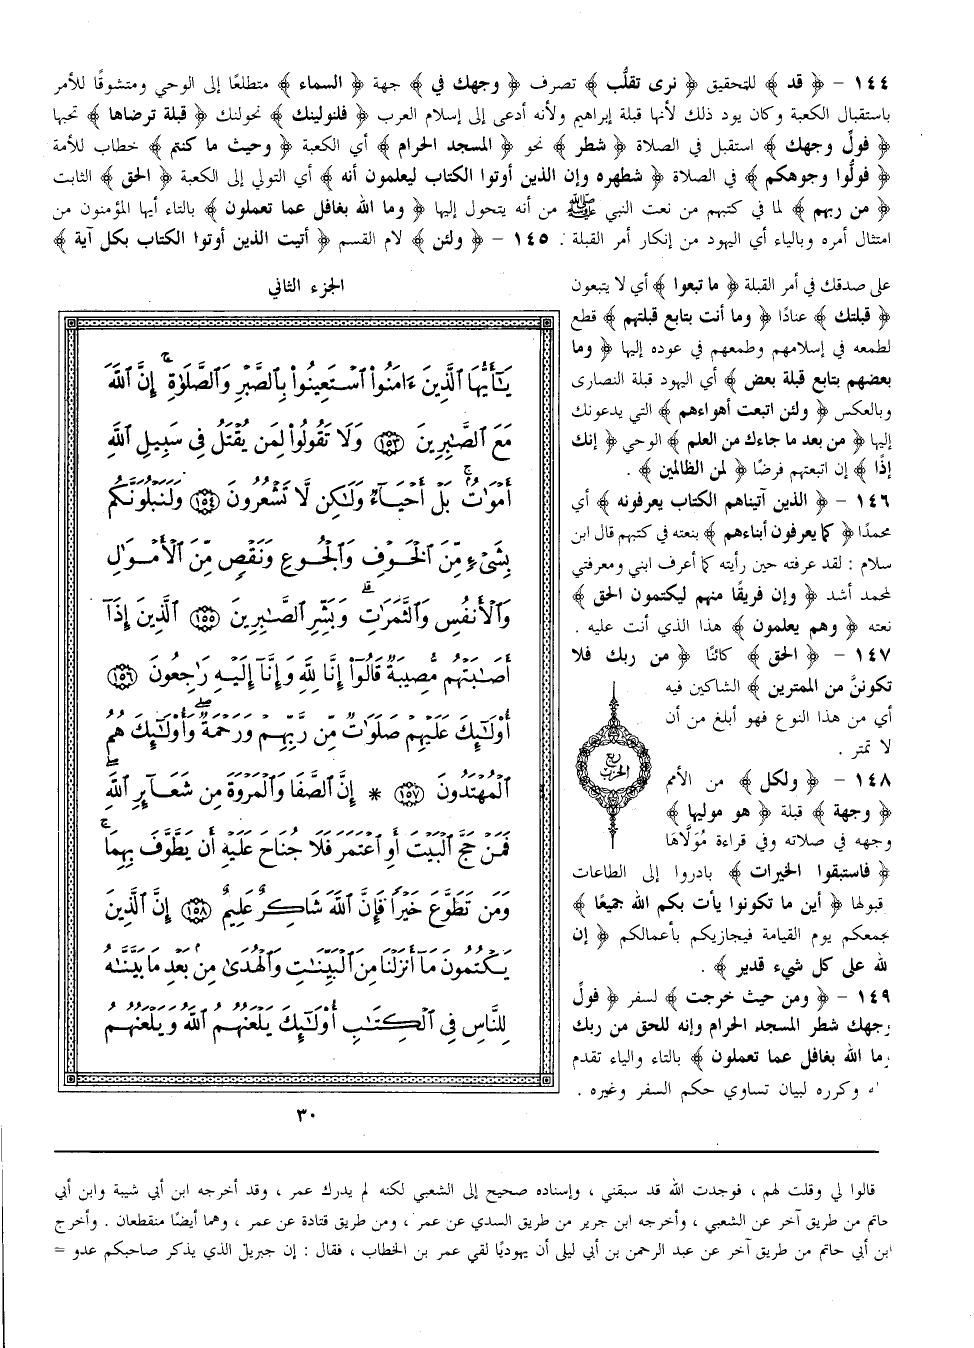 ١٤٤ - ﴿ قد ﴾ للتحقيق ﴿ نرى تقلُّب ﴾ تصرف ﴿ وجهك في ﴾ جهة ﴿ السماء ﴾ متطلعًا إلى الوحي ومتشوقًا للأمر
باستقبال الكعبة وكان يود ذلك لأنها قبلة إبراهيم ولأنه أدعى إلى إسلام العرب ﴿ فلنولينك ﴾ نحولنك ﴿ قبلة ترضاها ﴾ تحبها
﴿ فولِّ وجهك ﴾ استقبل في الصلاة ﴿ شطر ﴾ نحو ﴿ المسجد الحرام ﴾ أي الكعبة ﴿ وحيث ما كنتم ﴾ خطاب للأمة
﴿ فولُّوا وجوهكم ﴾ في الصلاة ﴿ شطره وإن الذين أوتوا الكتاب ليعلمون أنه ﴾ أي التولي إلى الكعبة ﴿ الحق ﴾ الثابت
﴿ من ربهم ﴾ لما في كتبهم من نعت النبي ﷺ من أنه يتحول إليها ﴿ وما الله بغافل عما تعملون ﴾ بالتاء أيها المؤمنون من
امتثال أمره وبالياء أي اليهود من إنكار أمر القبلة . ١٤٥ - ﴿ ولئن ﴾ لام القسم ﴿ أتيت الذين أوتوا الكتاب بكل آية ﴾
على صدقك في أمر القبلة ﴿ ما تبعوا ﴾ أي لا يتبعون
﴿ قبلتك ﴾ عنادًا ﴿ وما أنت بتابع قبلتهم ﴾ قطع
لطمعه في إسلامهم وطمعهم في عوده إليها ﴿ وما
بعضهم بتابع قبلة بعض ﴾ أي اليهود قبلة النصارى
وبالعكس ﴿ ولئن اتبعت أهواءهم ﴾ التي يدعونك
إليها ﴿ من بعد ما جاءك من العلم ﴾ الوحي ﴿ إنك
إذًا ﴾ إن اتبعتهم فرضًا ﴿ لمن الظالمين ﴾ .
١٤٦ - ﴿ الذين آتيناهم الكتاب يعرفونه ﴾ أي
محمدًا ﴿ كما يعرفون أبناءهم ﴾ بنعته في كتبهم قال ابن
سلام : لقد عرفته حين رأيته كما أعرف ابني ومعرفتي
لمحمد أشد ﴿ وإن فريقًا منهم ليكتمون الحق ﴾
نعته ﴿ وهم يعلمون ﴾ هذا الذي أنت عليه .
١٤٧ - ﴿ الحق ﴾ كائنًا ﴿ من ربك فلا
تكوننَّ من الممترين ﴾ الشاكين فيه
أي من هذا النوع فهو أبلغ من أن
لا تمتر .
١٤٨ - ﴿ ولكل ﴾ من الأمم
﴿ وجهة ﴾ قبلة ﴿ هو موليها ﴾
وجهه في صلاته وفي قراءة مُوَلَّاهَا
﴿ فاستبقوا الخيرات ﴾ بادروا إلى الطاعات
قبولها ﴿ أين ما تكونوا يأت بكم الله جميعًا ﴾
يجمعكم يوم القيامة فيجازيكم بأعمالكم ﴿ إن
لله على كل شيء قدير ﴾ .
١٤٩ - ﴿ ومن حيث خرجت ﴾ لسفر ﴿ فولِّ
وجهك شطر المسجد الحرام وإنه للحق من ربك
وما الله بغافل عما تعملون ﴾ بالتاء والياء تقدم
وكرره لبيان تساوي حكم السفر وغيره .
ربع
الحزب
الجزء الثاني
يَٰٓأَيُّهَا ٱلَّذِينَ ءَامَنُوا۟ ٱسْتَعِينُوا۟ بِٱلصَّبْرِ وَٱلصَّلَوٰةِ ۚ إِنَّ ٱللَّهَ
مَعَ ٱلصَّٰبِرِينَ ١٥٣ وَلَا تَقُولُوا۟ لِمَن يُقْتَلُ فِى سَبِيلِ ٱللَّهِ
أَمْوَٰتٌۢ ۚ بَلْ أَحْيَآءٌ وَلَٰكِن لَّا تَشْعُرُونَ ١٥٤ وَلَنَبْلُوَنَّكُم
بِشَىْءٍ مِّنَ ٱلْخَوْفِ وَٱلْجُوعِ وَنَقْصٍ مِّنَ ٱلْأَمْوَٰلِ
وَٱلْأَنفُسِ وَٱلثَّمَرَٰتِ ۗ وَبَشِّرِ ٱلصَّٰبِرِينَ ١٥٥ ٱلَّذِينَ إِذَآ
أَصَٰبَتْهُم مُّصِيبَةٌ قَالُوٓا۟ إِنَّا لِلَّهِ وَإِنَّآ إِلَيْهِ رَٰجِعُونَ ١٥٦
أُو۟لَٰٓئِكَ عَلَيْهِمْ صَلَوَٰتٌ مِّن رَّبِّهِمْ وَرَحْمَةٌ ۖ وَأُو۟لَٰٓئِكَ هُمُ
ٱلْمُهْتَدُونَ ١٥٧ * إِنَّ ٱلصَّفَا وَٱلْمَرْوَةَ مِن شَعَآئِرِ ٱللَّهِ ۖ
فَمَنْ حَجَّ ٱلْبَيْتَ أَوِ ٱعْتَمَرَ فَلَا جُنَاحَ عَلَيْهِ أَن يَطَّوَّفَ بِهِمَا ۚ
وَمَن تَطَوَّعَ خَيْرًا فَإِنَّ ٱللَّهَ شَاكِرٌ عَلِيمٌ ١٥٨ إِنَّ ٱلَّذِينَ
يَكْتُمُونَ مَآ أَنزَلْنَا مِنَ ٱلْبَيِّنَٰتِ وَٱلْهُدَىٰ مِنۢ بَعْدِ مَا بَيَّنَّٰهُ
لِلنَّاسِ فِى ٱلْكِتَٰبِ أُو۟لَٰٓئِكَ يَلْعَنُهُمُ ٱللَّهُ وَيَلْعَنُهُمُ
٣٠
قالوا لي وقلت لهم ، فوجدت الله قد سبقني ، وإسناده صحيح إلى الشعبي لكنه لم يدرك عمر ، وقد أخرجه ابن أبي شيبة وابن أبي
حاتم من طريق آخر عن الشعبي ، وأخرجه ابن جرير من طريق السدي عن عمر ، ومن طريق قتادة عن عمر ، وهما أيضًا منقطعان . وأخرج
ابن أبي حاتم من طريق آخر عن عبد الرحمن بن أبي ليلى أن يهوديًا لقي عمر بن الخطاب ، فقال : إن جبريل الذي يذكر صاحبكم عدو =